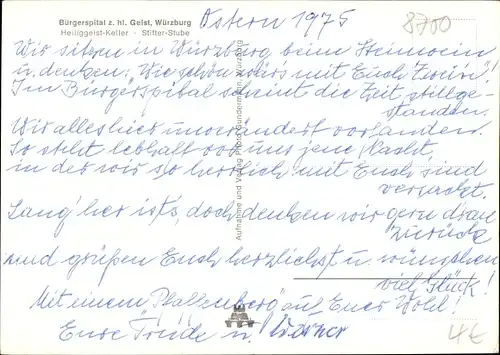 Bürgerspital z. hl. Geist, Würzburg
Heiliggeist-Keller · Stifter-Stube
Ostern 1975
8700
Wir sitzen in Würzburg beim Steinwein
u. denken: Wie schön wär's mit Euch !
Im Bürgerspital scheint die Zeit stillge-
standen.
Wir alles hier unverändert vorfanden.
So steht lebhaft vor uns jene Nacht,
in der wir so herrlich mit Euch sind
versackt.
Lang' her ist's, doch denken wir gern dran
zurück
und grüßen Euch herzlichst u. wünschen
viel Glück!
Mit einem "Pfaffenberg" auf Euer Wohl!
Eure Trude u. Werner
Aufnahme und Verlag Gundermann, Würzburg
4€